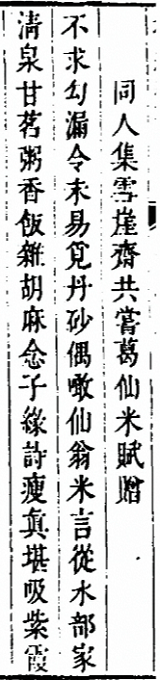 同人集雪崖齋共嘗葛仙米賦贈
不求勾漏令未易覓丹砂偶噉仙翁米言從水部家
清泉甘茗粥香飯雜胡麻念子緣詩瘦真堪吸紫霞